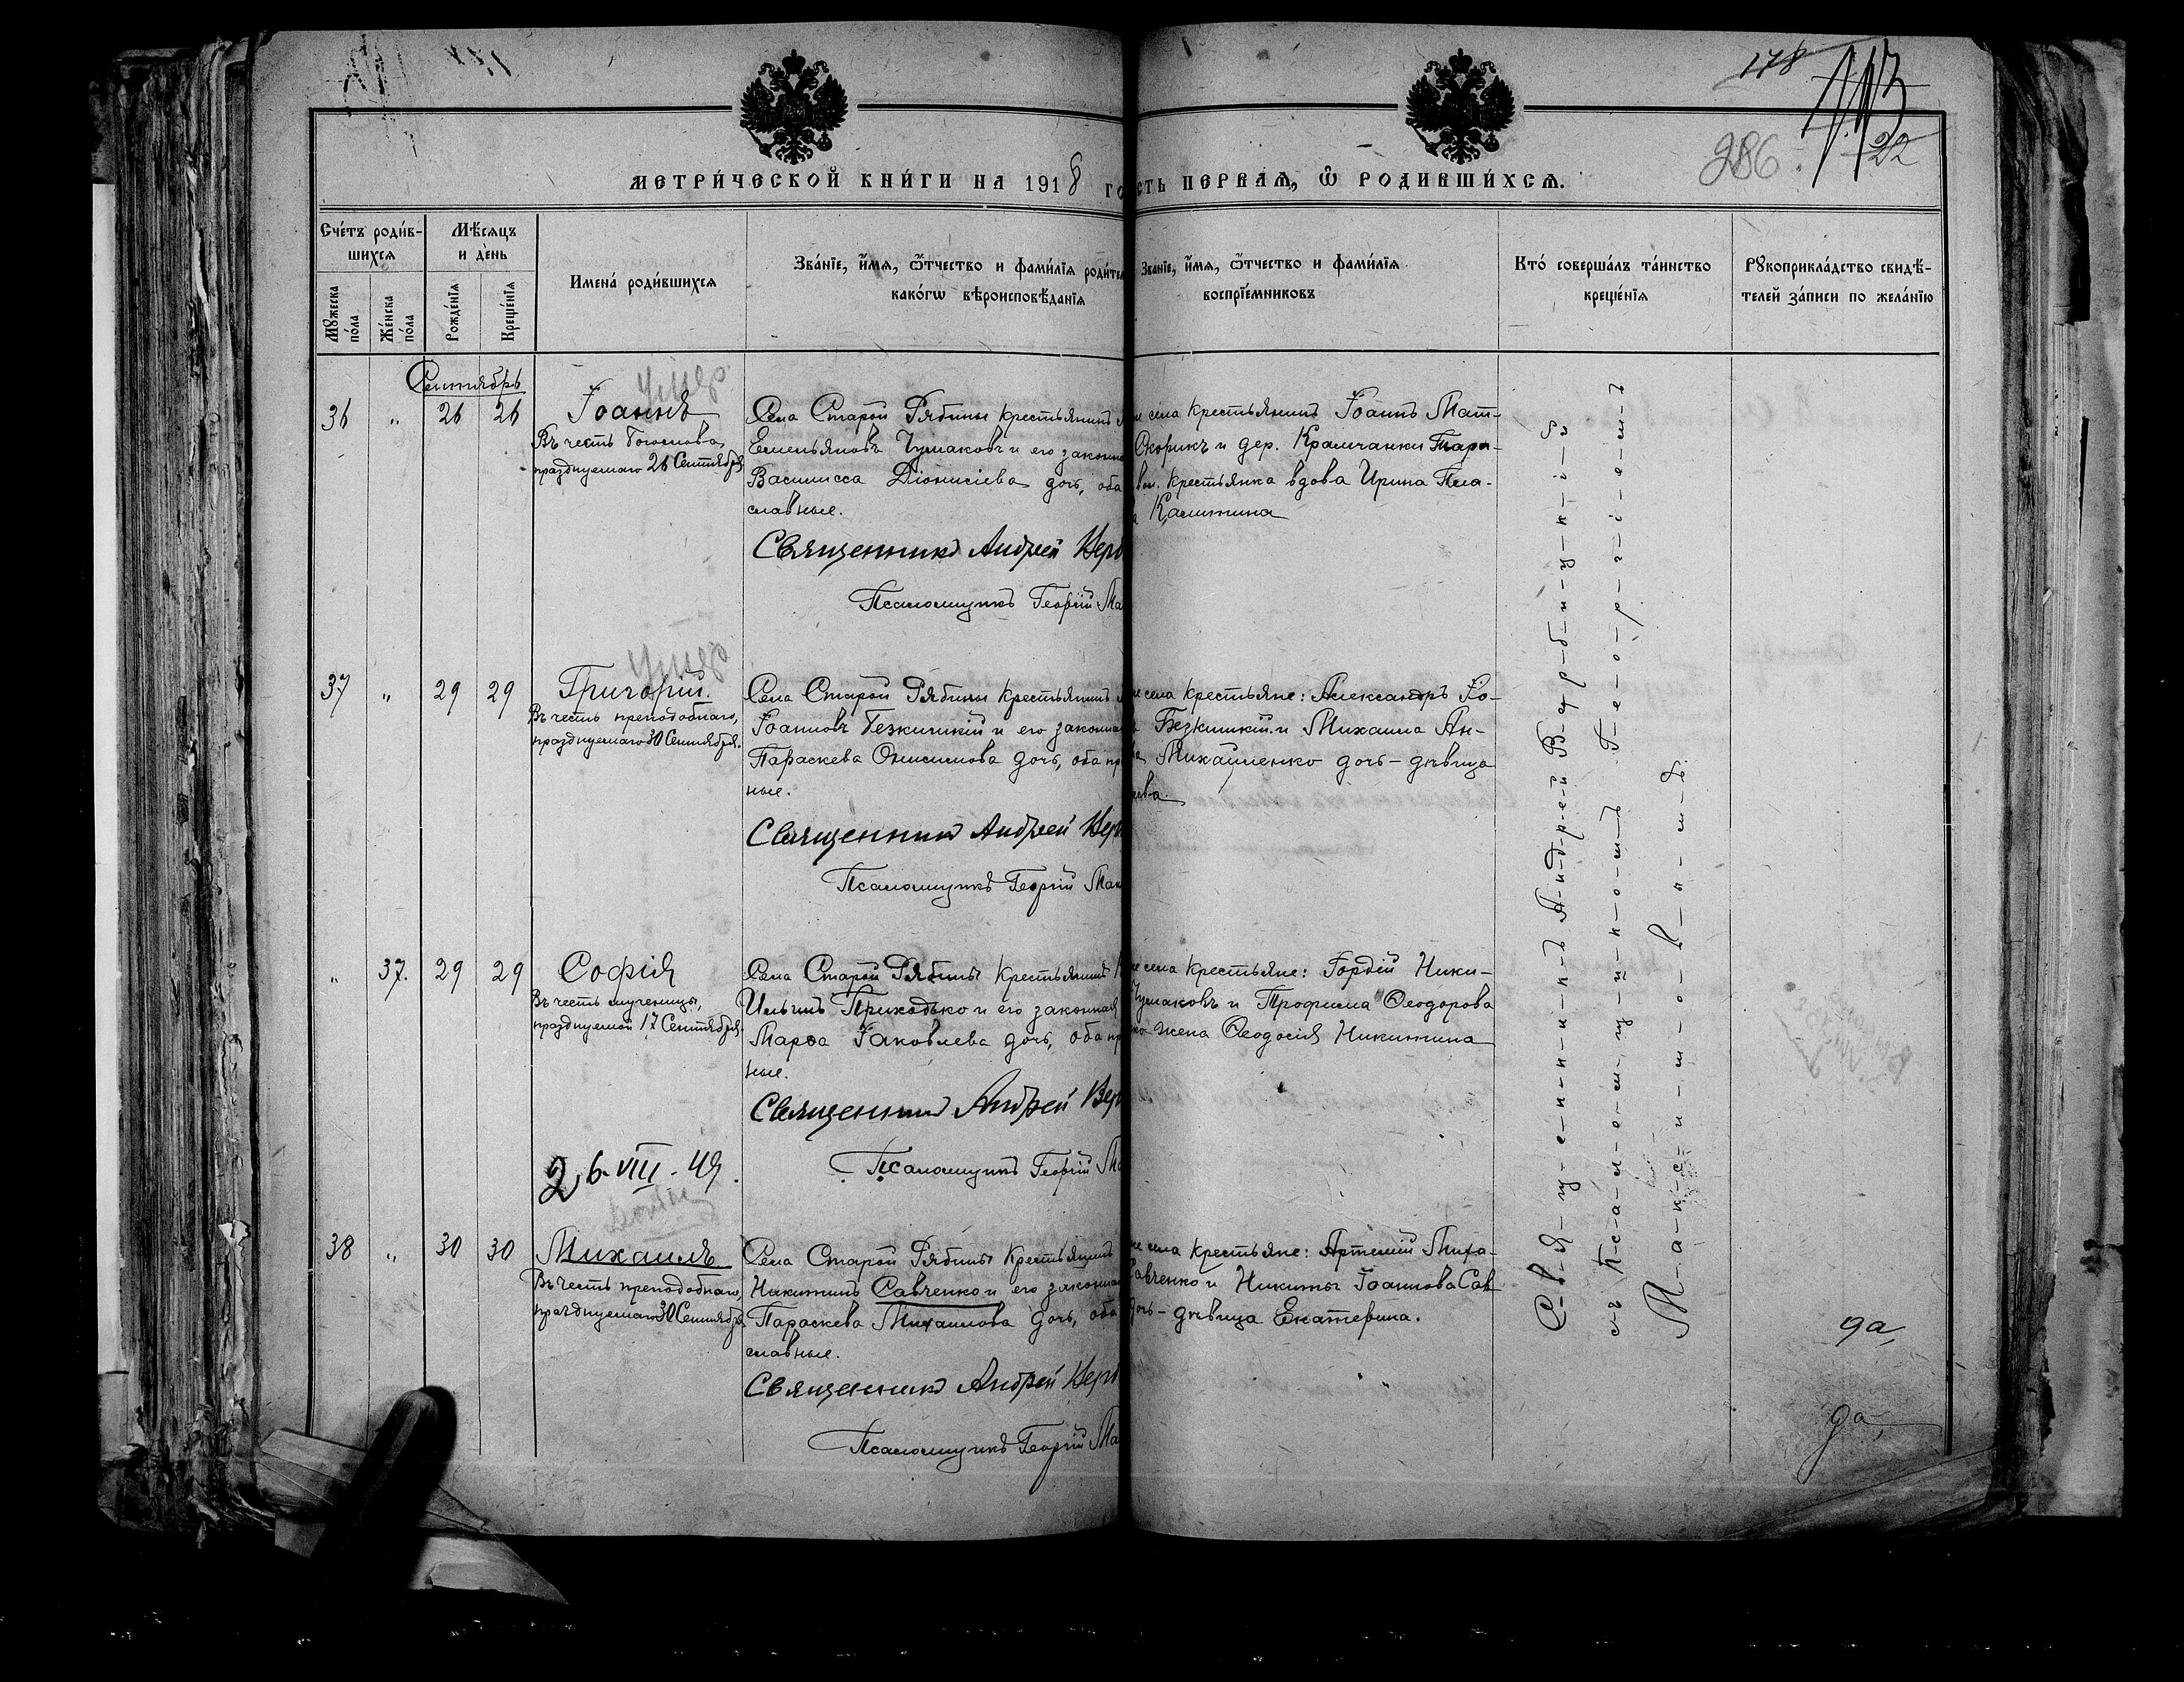 178
286.
22
МЕТРИ́ЧЕСКОЙ КНИ́ГИ НА 1918 го
сть ПЕРВАѦ, Ѿ РОДИВШИ́ХСѦ.
Сче́тъ роди́в-
шихсѧ
Мѣ́сѧцъ
и де́нь
Мꙋ́жеска
по́ла
Же́нска
по́ла
Рожде́нїѧ
Креще́нїѧ
Имена́ роди́вшихсѧ
Зва́нїе, и́мѧ, ѻ҆́тчество и фами́лїѧ родите
како́гѡ вѣроисповѣ́данїѧ
Зва́нїе, и́мѧ, ѻ҆́тчество и фами́лїѧ
воспрїе́мниковъ
Кто́ соверша́лъ та́инство
креще́нїѧ
Рꙋкоприкла́дство свидѣ́-
телей за́писи по жела́нїю
Сентябрь
умер
36 " 26 26 Іоаннъ
Въ честь Богослова,
празднуемаго 26 Сентября
Села Старой Рябины крестьянинъ
Емельяновъ Чумаковъ и его законна
Василисса Діонисіева дочь, оба
славные.
Священникъ Андрей Верб
Псаломщикъ Георгій Ма
села крестьянинъ Іоаннъ Мат-
Скорикъ и дер. Крамчанки Тара-
вол. крестьянка вдова Ирина Пла-
Калитина
умер
37 " 29 29 Григорій.
Въ честь преподобнаго,
празднуемаго 30 Сентября.
Села Старой Рябины крестьянинъ
Іоанновъ Безкишкій и его законна
Параскева Онисимова дочь, оба пр
ные.
Священникъ Андрей Вер
Псаломщикъ Георгій Мак
села крестьяне: Александръ Іо-
Безкишкій и Михаила Ан-
Михайленко дочь - дѣвица
ева.
" 37. 29 29 Софія
Въ честь мученицы,
празднуемой 17 Сентября.
Села Старой Рябины крестьянинъ
Ильинъ Приходько и его законная
Марѳа Іаковлева дочь, оба пр
ные.
Священникъ Андрей Вер
Псаломщикъ Георгій Ма
села крестьяне: Гордій Ники-
Чумаковъ и Трофима Ѳеодорова
жена Ѳеодосія Никитина
26-VIII-49.
38 " 30 30 Михаилъ
Въ честь преподобнаго,
празднуемаго 30 Сентября.
Села Старой Рябины крестьянинъ
Никитинъ Савченко и его законна
Параскева Михаилова дочь, оба
славные.
Священникъ Андрей Верб
Псаломщикъ Георгій Ма
села крестьяне: Артемій Миха-
Савченко и Никиты Іоаннова Сав
дочь - дѣвица Екатерина.
С-в-я-щ-е-н-н-и-к-ъ А-н-д-р-е-й В-е-р-б-и-ц-к-і-й
съ П-с-а-л-о-м-щ-и-к-о-м-ъ Г-е-о-р-г-і-е-м-ъ
М-а-к-с-и-м-о-в-ы-м-ъ.
да,
да,